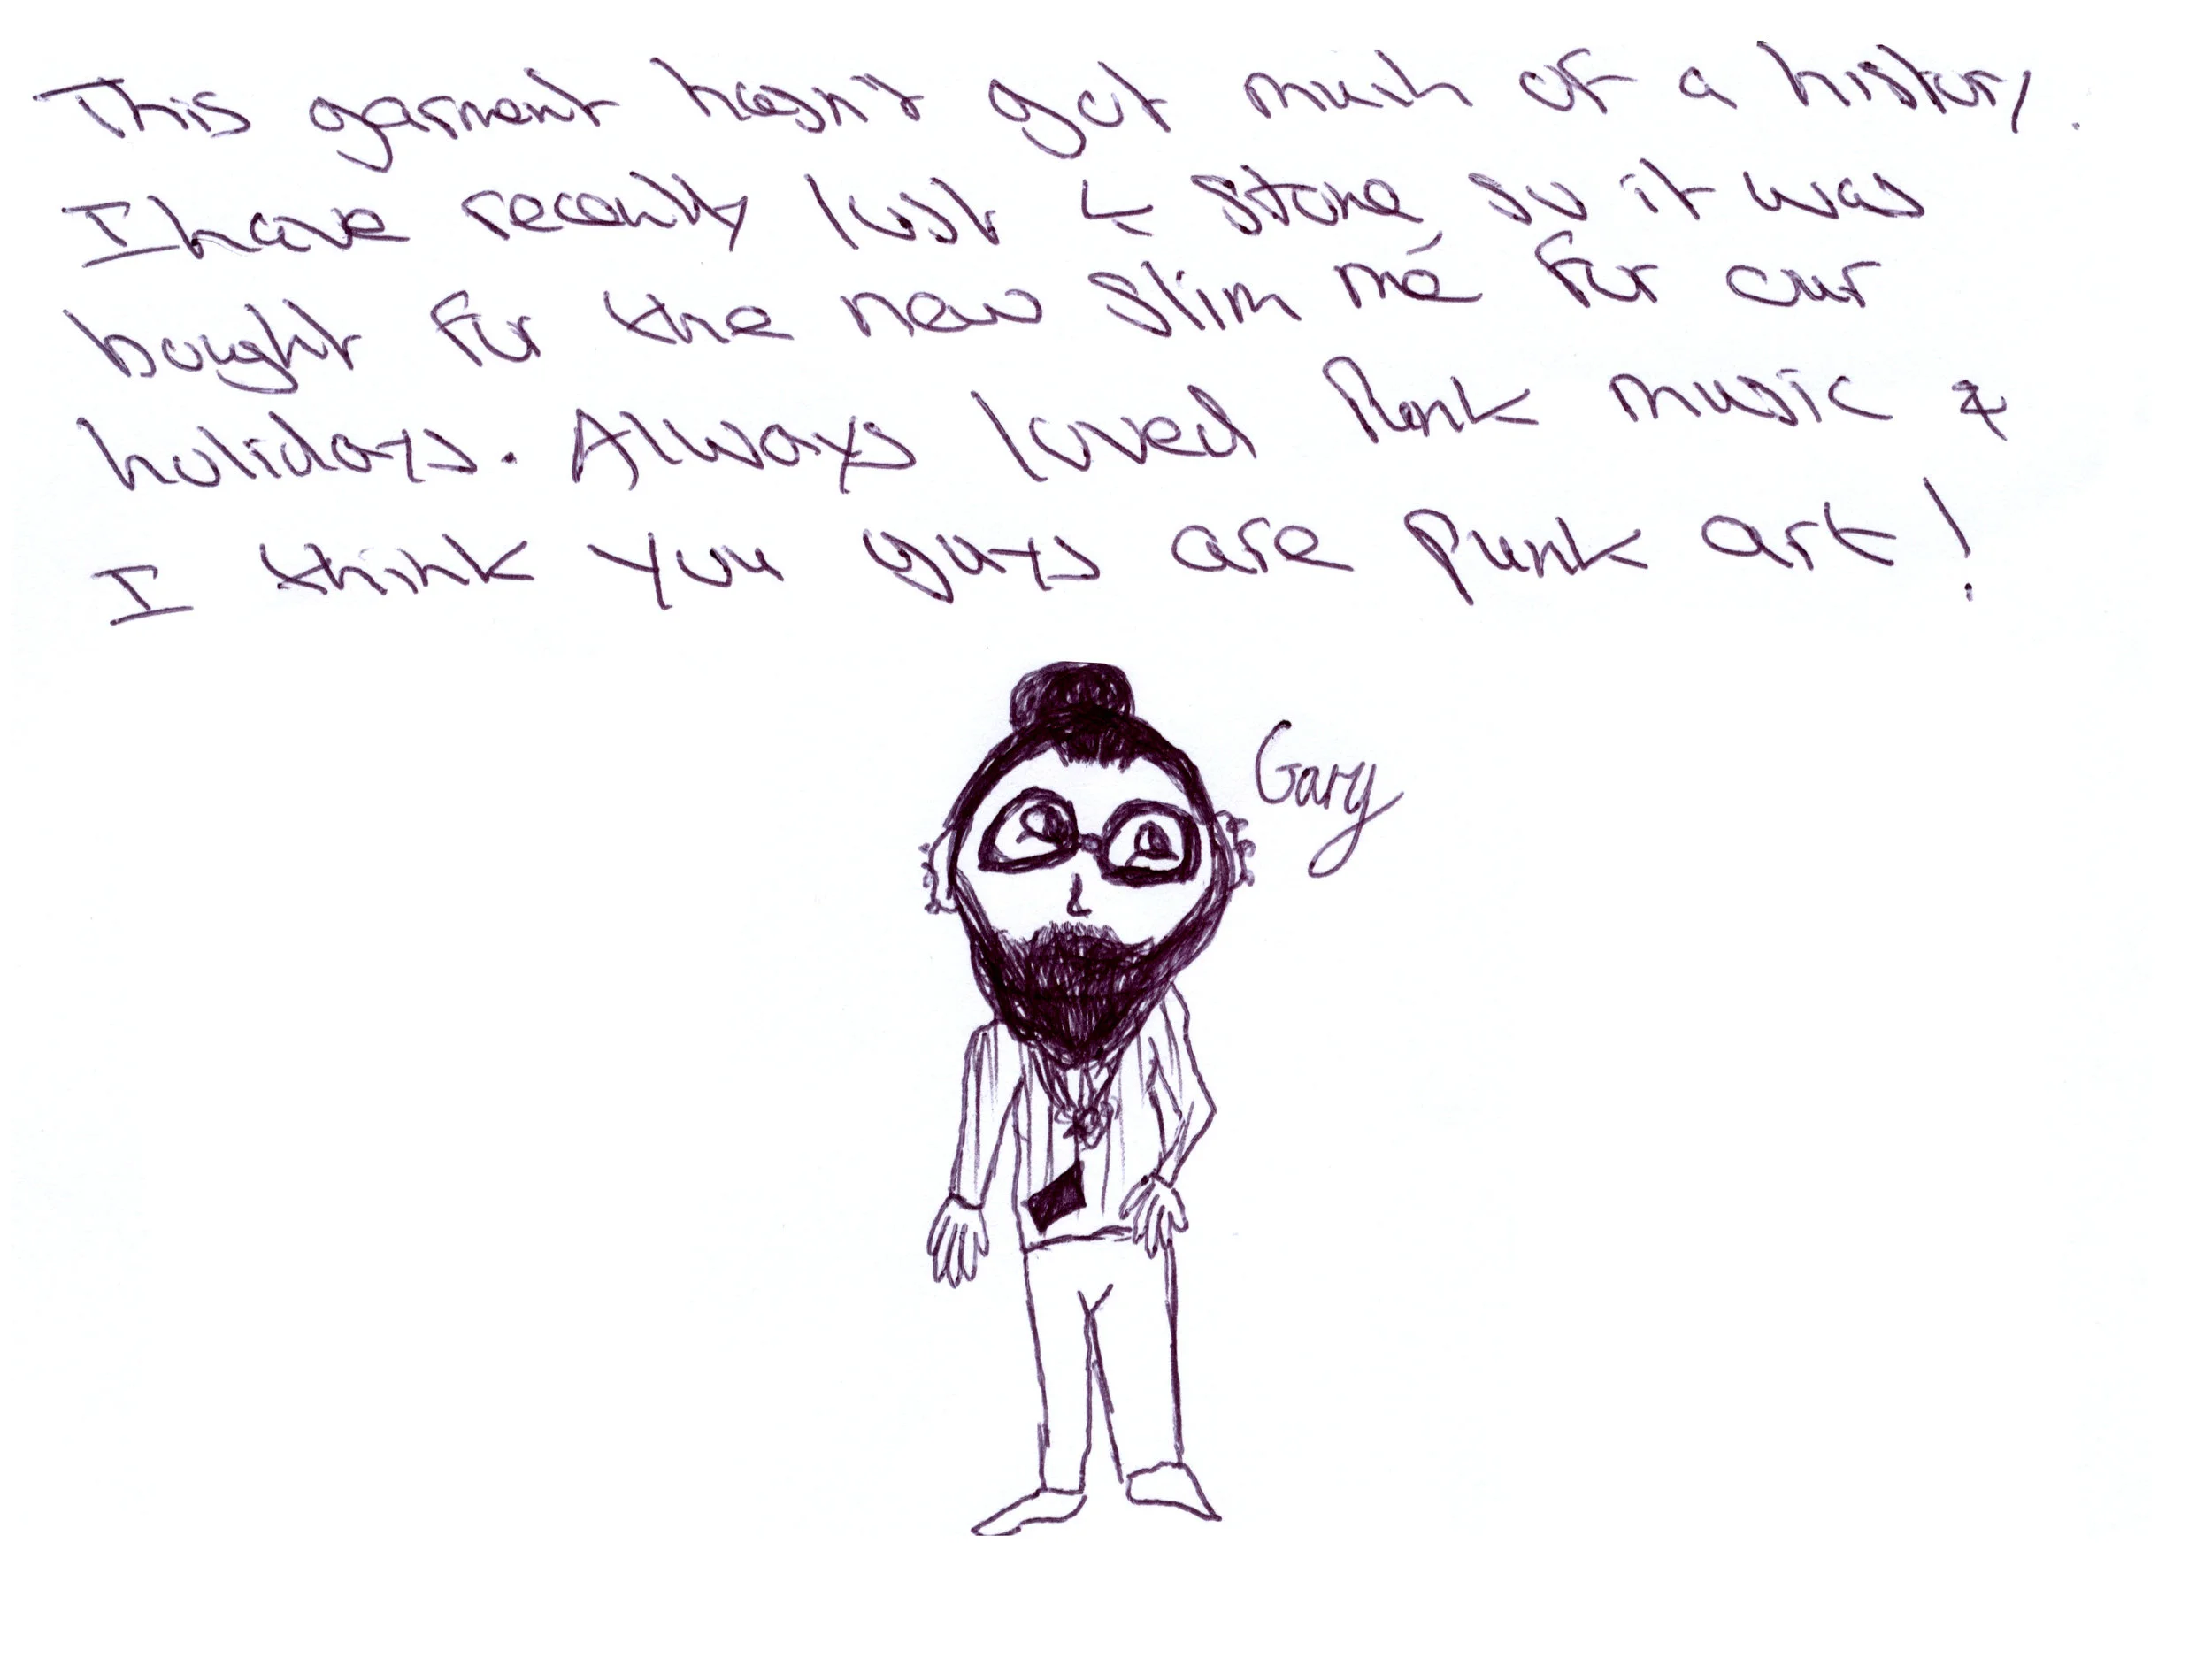 This garment hasn't got much of a history.
I have recently lost 4 stone, so it was
bought for the new slim me for our
holidays. Always loved Punk music &
I think you guys are punk art!
Gary